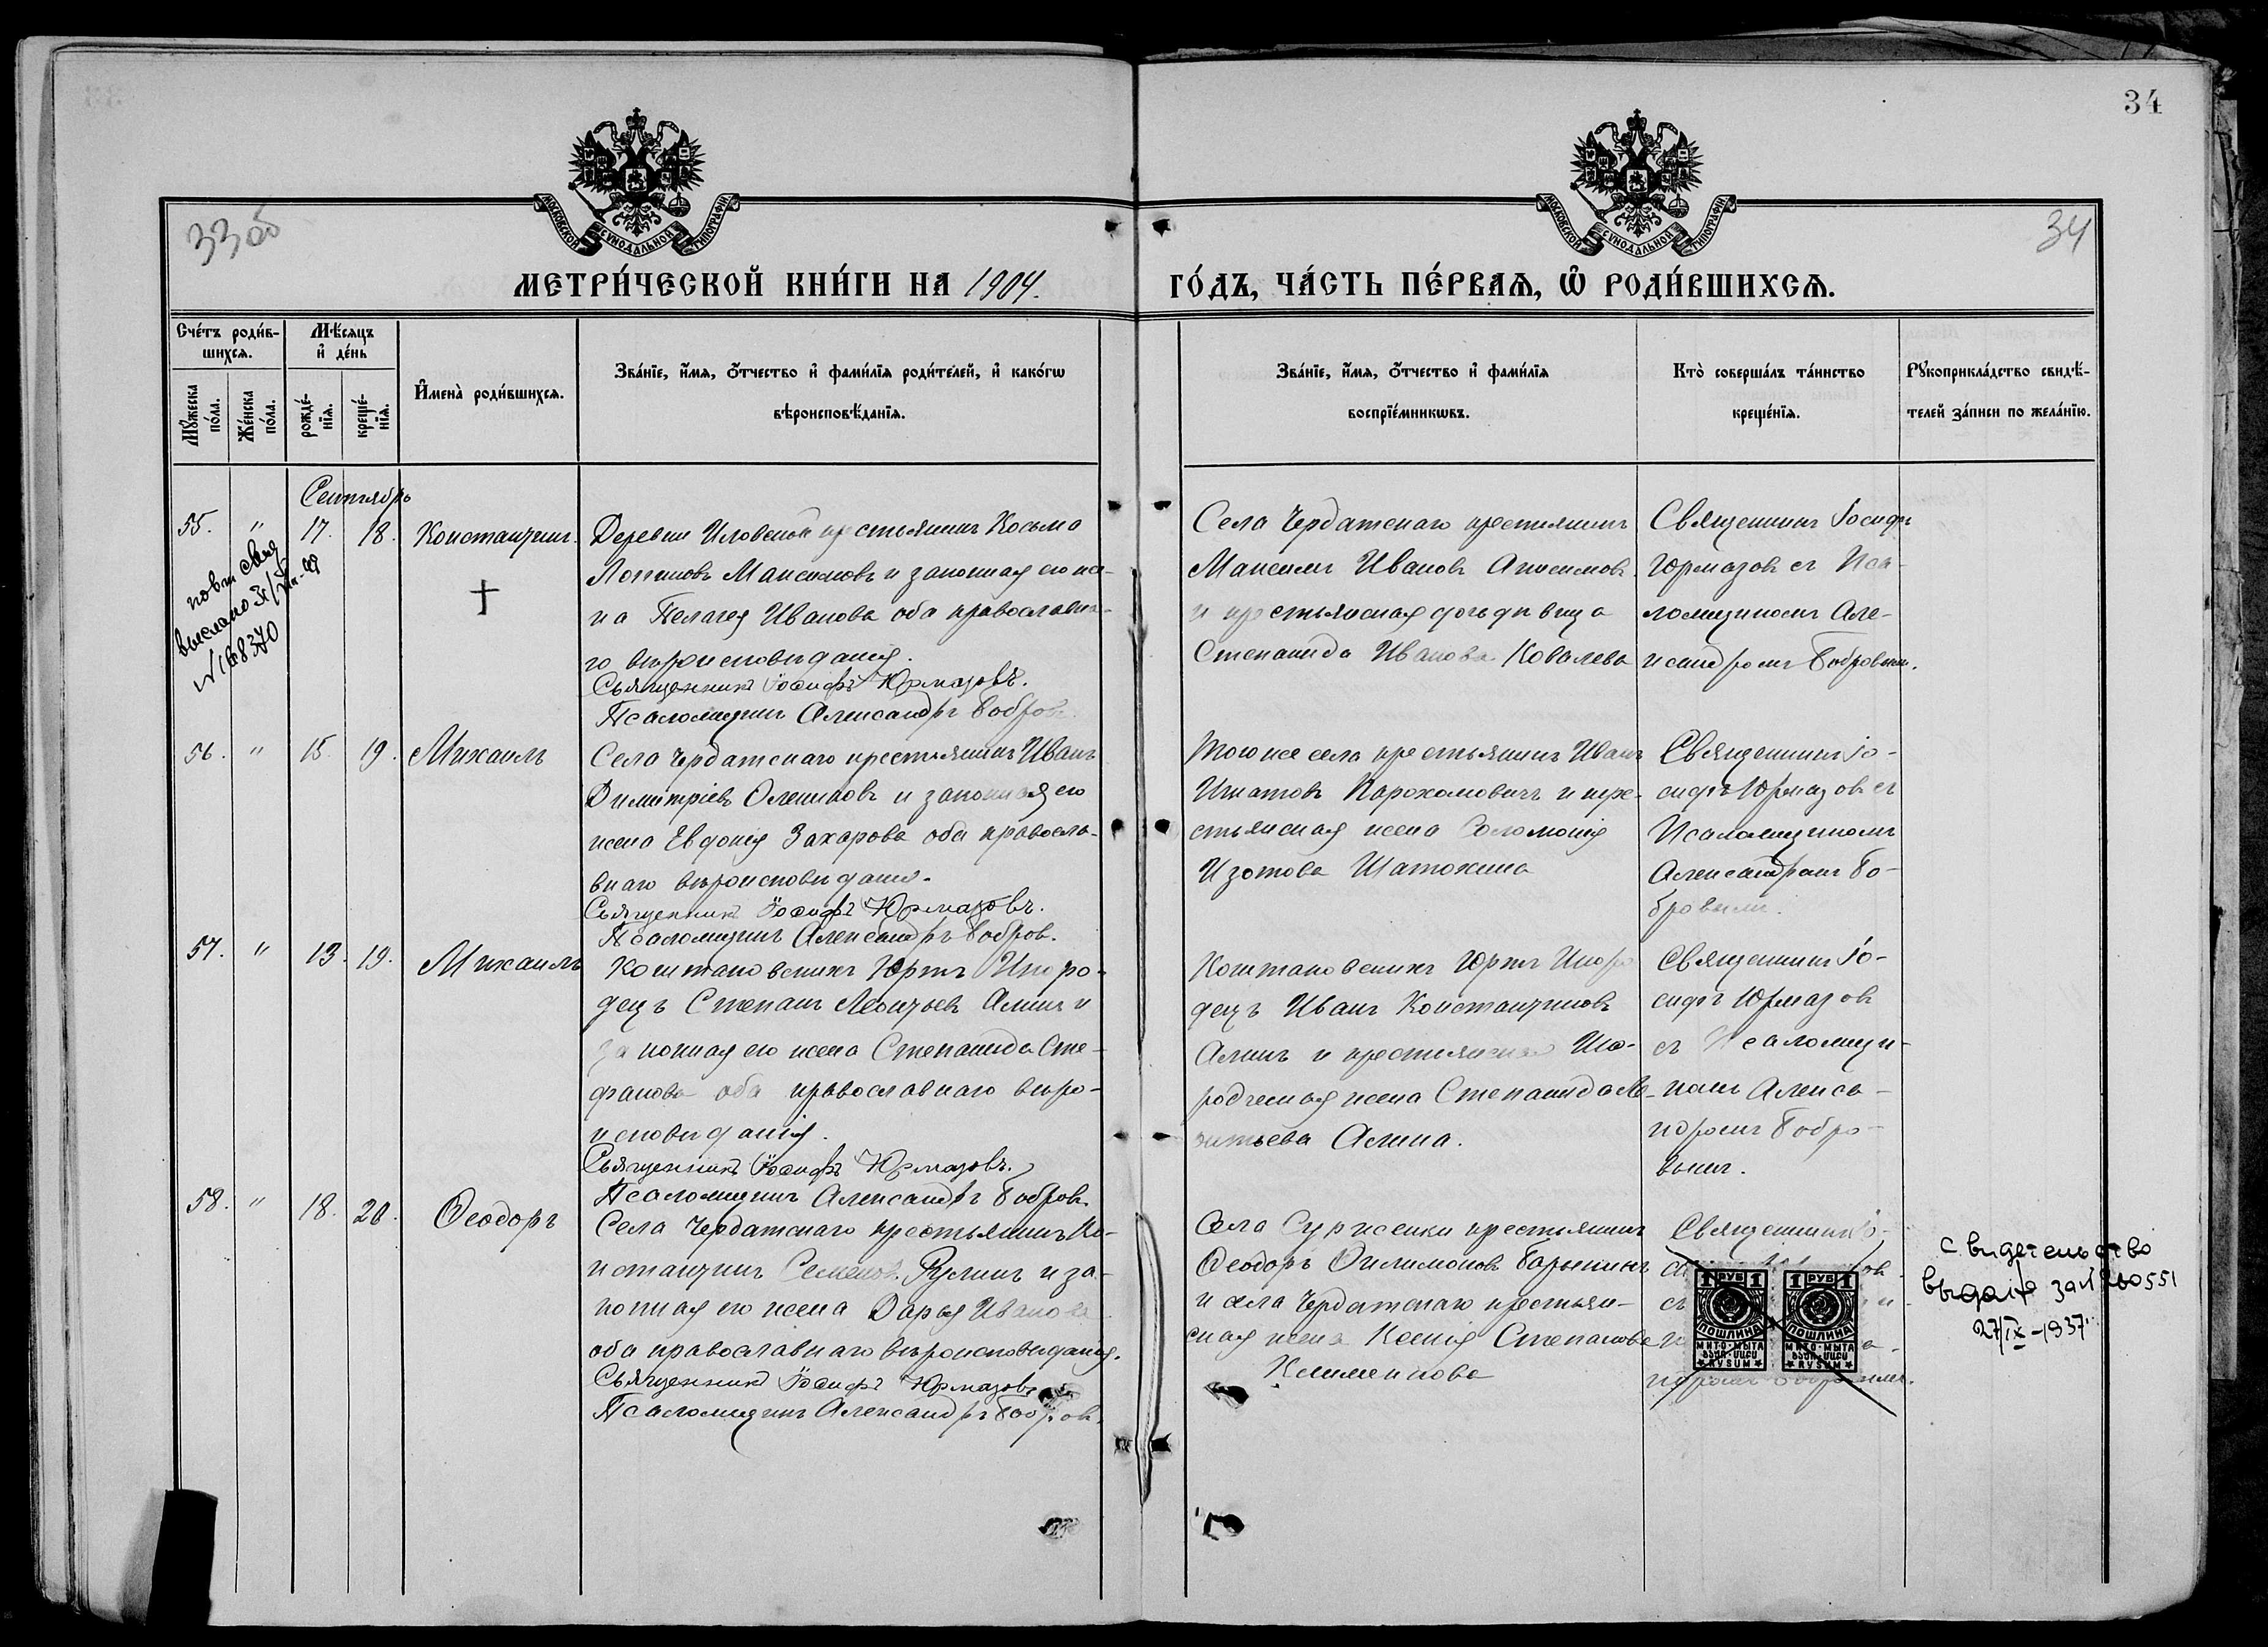 34
33 об
34
МОСКОВСКОЙ СѴНОДАЛЬНОЙ ТИПОГРАФІИ
МОСКОВСКОЙ СѴНОДАЛЬНОЙ ТИПОГРАФІИ
МЕТРИ́ЧЕСКОЙ КНИ́ГИ НА 1904.
ГО́ДЪ, ЧА́СТЬ ПЕ́РВАѦ, Ѡ҆ РОДИ́ВШИХСѦ.
Сче́тъ роди́в-
шихсѧ.
Мꙋ́жеска по́ла.
Же́нска по́ла.
Мѣ́сѧцъ
и҆ де́нь
рожде́-
нїѧ.
креще́-
нїѧ.
И҆мена̀ роди́вшихсѧ.
Зва́нїе, и҆́мѧ, ѻ҆́тчество и҆ фами́лїѧ роди́телей, и҆ како́гѡ
вѣроисповѣ́данїѧ.
Зва́нїе, и҆́мѧ, ѻ҆́тчество и҆ фами́лїѧ
воспрїе́мникѡвъ.
Кто̀ соверша́лъ та́инство
креще́нїѧ.
Рꙋкоприкла́дство свидѣ́-
телей за́писи по жела́нїю.
Сентябрь
55. " 17. 18. Константинъ.
повт свид
выслано
№ 68370
Деревни Иловской крестьянинъ Косьма
Логиновъ Максимовъ и законная его же-
на Пелагея Иванова оба православна-
го вѣроисповѣданія.
Священникъ Іосифъ Юрмазовъ.
Псаломщикъ Александръ Бобров
Села Чердатскаго крестьянинъ
Максимъ Ивановъ Анисимовъ
и крестьянская дочь девица
Степанида Иванова Ковалева
Священникъ Іосифъ
Юрмазовъ съ Пса-
ломщикомъ Але-
ксандромъ Бобровым.
56. " 15. 19. Михаилъ
Села Чердатскаго крестьянинъ Иванъ
Димитріевъ Олениковъ и законная его
жена Евдокія Захарова оба правосла-
внаго вѣроисповѣданія.
Священникъ Іосифъ Юрмазовъ.
Псаломщикъ Александръ Бобров.
Того же села крестьянинъ Иванъ
Игнатовъ Парохомовичъ и кре-
стьянская жена Соломонія
Изотова Шатохина
Священникъ Іо-
сифъ Юрмазовъ съ
Псаломщикомъ
Александромъ Бо-
бровымъ.
57. " 13. 19. Михаилъ
Коштаковскихъ Юртъ Иноро-
децъ Степанъ Леонтьевъ Алинъ и
законная его жена Степанида Сте-
фанова оба православнаго вѣро-
исповѣданія.
Священникъ Іосифъ Юрмазовъ.
Псаломщикъ Александръ Бобров.
Коштаковскихъ Юртъ Иноро
децъ Иванъ Константиновъ
Алинъ и крестьянская Ино-
родческая жена Степанида Ле-
онтьева Алина.
Священникъ Іо-
сифъ Юрмазовъ
съ Псаломщи-
комъ Алекса-
ндромъ Бобро-
вымъ.
58. " 18. 20. Ѳеодоръ
Села Чердатскаго крестьянинъ Ко-
нстантинъ Семеновъ Руслин и за-
конная его жена Дарья Иванова
оба православнаго вѣроисповѣданія.
Священникъ Іосифъ Юрмазовъ
Псаломщикъ Александръ Бобров.
Села Сурженки крестьянинъ
Ѳеодоръ Филимоновъ Барышин
и села Чердатскаго крестьян-
ская жена Ксенія Степанова
Климентова
Священникъ Іо-
1 РУБ 1
ПОШЛИНА
МИТО·МЫТА
RÝSUM
1 РУБ 1
ПОШЛИНА
МИТО·МЫТА
RÝSUM
ндромъ Бобровымъ.
свидетельство
выдано за № 200551
27/IX-1937